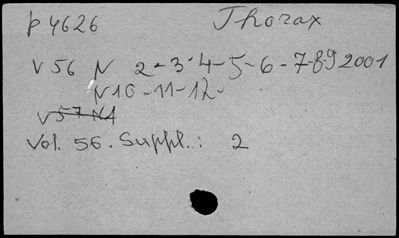 p 4626 Thorax
V 56 N 2-3-4-5-6-7-8-9 2001
N 10-11-12-
V 57 N1
Vol. 56. Suppl.: 2